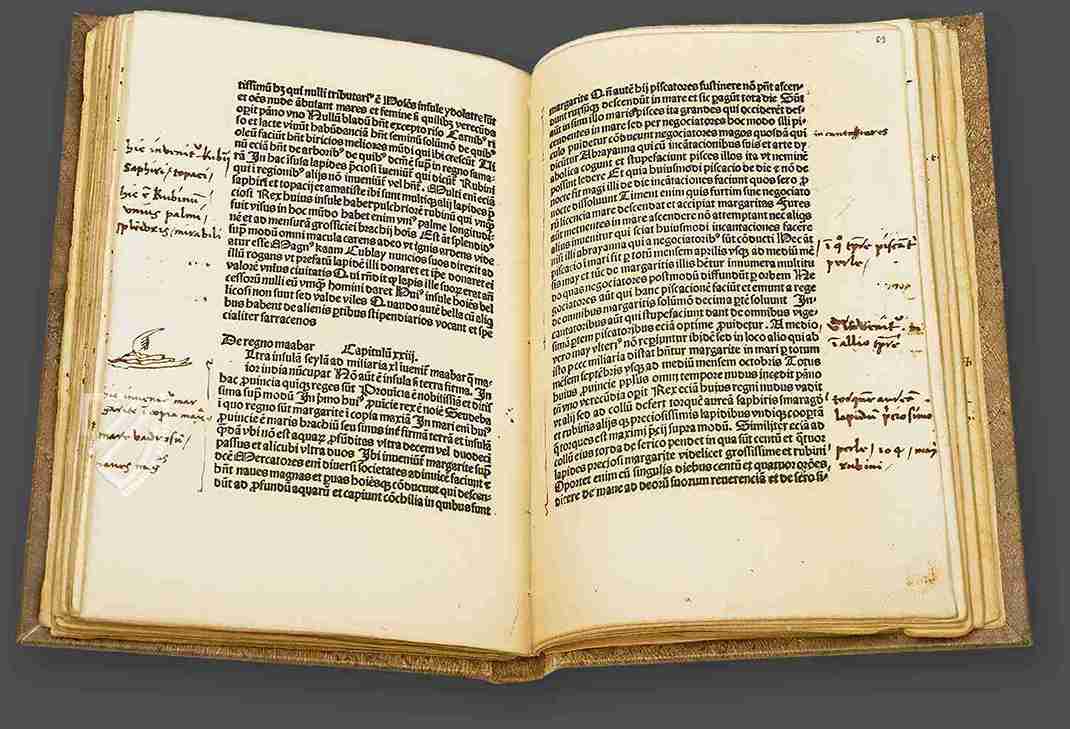 tissimū
et oēs nude ābulant mares et femine s̄ quilibz verecūda
opit pāno vno Nullū bladū bn̄t excepto riso Carnibꝰ ri
so et lacte viuūt habūdanciā bn̄t seminū solūmō de quibꝰ
oleū faciūt bn̄t biricios meliores mūdi qui ibi crescūt Ui
nū eciā bn̄t de arboribꝰ de quibꝰ
rū In hac īsula lapides p̄ciosi īueniūt qui dicūt Rubini
qui ī regionibꝰ alijs nō īueniūt vel bn̄t Multi eni eciā
saphiri et topacij et amatiste ibi sunt multiqꝫ alij lapides p̄
ciosi Rex huius insule habet pulchriorē rubinū qui vnqꝫ
fuit visus in hoc mūdo habet enim vniꝰ palme longitudi
nē et ad mensurā grossiciei brachij bois Est āt splendidꝰ
sup modū omni macula carens adeo vt ignis ardens vide
atur esse Magnꝰ Kaam Cublay nuncios suos direxit ad
illū rogans vt prefatū lapidē illi donaret et ipe donaret ei
valorē vnius ciuitatis Qui rn̄dit qꝫ lapis ille suoꝝ erat an̄
cessorū nulli eū vmqꝫ homini daret Huiꝰ insule hoīes bel
licosi non sunt sed valde viles Quando autē bella cū aliqͥ
bus habent de alienis ptibus stipendiarios vocant et spe
cialiter sarracenos
De regno maabar Capitulū xxiij.
Ultra insulā seylā ad miliaria xl īuenit maabar q̄ ma
ior india nūcupat Nō aūt ē insula s̄ terra firma. In
hac ꝓuincia quiqꝫ reges sūt Prouīcia ē nobilissiā et ditis
sima sup modū In p̄mo huiꝰ ꝓuicie rex ē noīe Senbeba
ī quo regno sūt margarite ī copia maxiā In mari eni huiꝰ
ꝓuincie ē maris brachiū seu sinus inf̄ firmā terrā et insulā
q̄dā vbi nō est aquaꝝ ꝓfūditas vltra decem vel duodecī
passus et alicubi vltra duos Ibi inueniūt margarite sup
dc̄e Mercatores eni diuersi societates ad inuicē faciunt et
bn̄t naues magnas et puas hoīesqꝫ cōducunt qui descen
dūt ad ꝓfundū aquarū et capiunt cōchilia in quibus sunt
hic
saphiri / topaci /
hic ē Rubinū
vnius palmi /
splēdoris / mirabili
margarite
naues mag
margarite Qn̄ autē hij piscatores sustinere nō pn̄t ascen
dunt rursusqꝫ descendūt in mare et sic pagūt tota die Sūt
aūt in sinu illo maris pisces ita grandes qui occiderēt des
cendentes in mare sed per negociatores hoc modo illi pi
culo puidetur cōducunt negociatores magos quosdā qui
dicūtur Abrayanna qui cū incātacionibus suis et arte dy
abolica cogunt et stupefaciunt pisces illos ita vt neminē
possint ledere Et quia huiusmodi piscacio de die et nō de
nocte fit magi illi de die incātaciones faciunt quos sero ꝓ
nocte dissoluunt Timent enim quis furtim sine negociato
rū licencia mare descendat et accipiat margaritas Fures
aūt metuentes in mare ascendere nō attemptant nec aliqͥs
alius inuenitur qui sciat huiusmodi incantaciones facere
nisi illi abrayanna qui a negociatoribꝰ sūt cōducti Hec āt
piscacio ī mari fit ꝑ totū mensem aprilis vsqꝫ ad mediū mē
sis may et tūc de margaritis illis habētur innumera multitu
do quas negociatores postmodū diffundūt ꝑ orbem Ne
gociatores aūt qui hanc piscacionē faciūt et emunt a rege
de omnibus margaritis solūmō decimā ꝑtē soluunt In
cantatoribus aūt qui stupefaciunt dant de omnibus vige
simā ꝑtem piscatoribus eciā optime ꝓuidetur. A medio
vero may vlteriꝰ nō repiuntur ibidē sed in loco alio qui ab
isto ꝑ ccc miliaria distat habētur margarite in mari ꝑ totum
mēsem septēbris vsqꝫ ad mediū mensem octobris Totus
huius ꝓuincie pplus omni tempore nudus incedit pāno
tn̄ vno verecūdia opit Rex eciā huius regni nudus vadit
vt alij sed ad collū defert torquē aureū saphiris smaragd
et rubinis alijsqꝫ preciosissimis lapidibus vndiqꝫ coopertā
q̄ torques est maximi p̄cij supra modū. Similiter eciā ad
collū eius corda de serico pendet in qua sūt centū et qͣtuor
lapides preciosi margarite videlicet grossissime et rubini
Oportet enim eū singulis diebus centū et quatuor orōes
dicere de mane ad deorū suorum reuerenciā et de sero si
incantatores
perle /
torquē aureū
lapidū p̄ciosimo
perle / 104 / may
rubini /